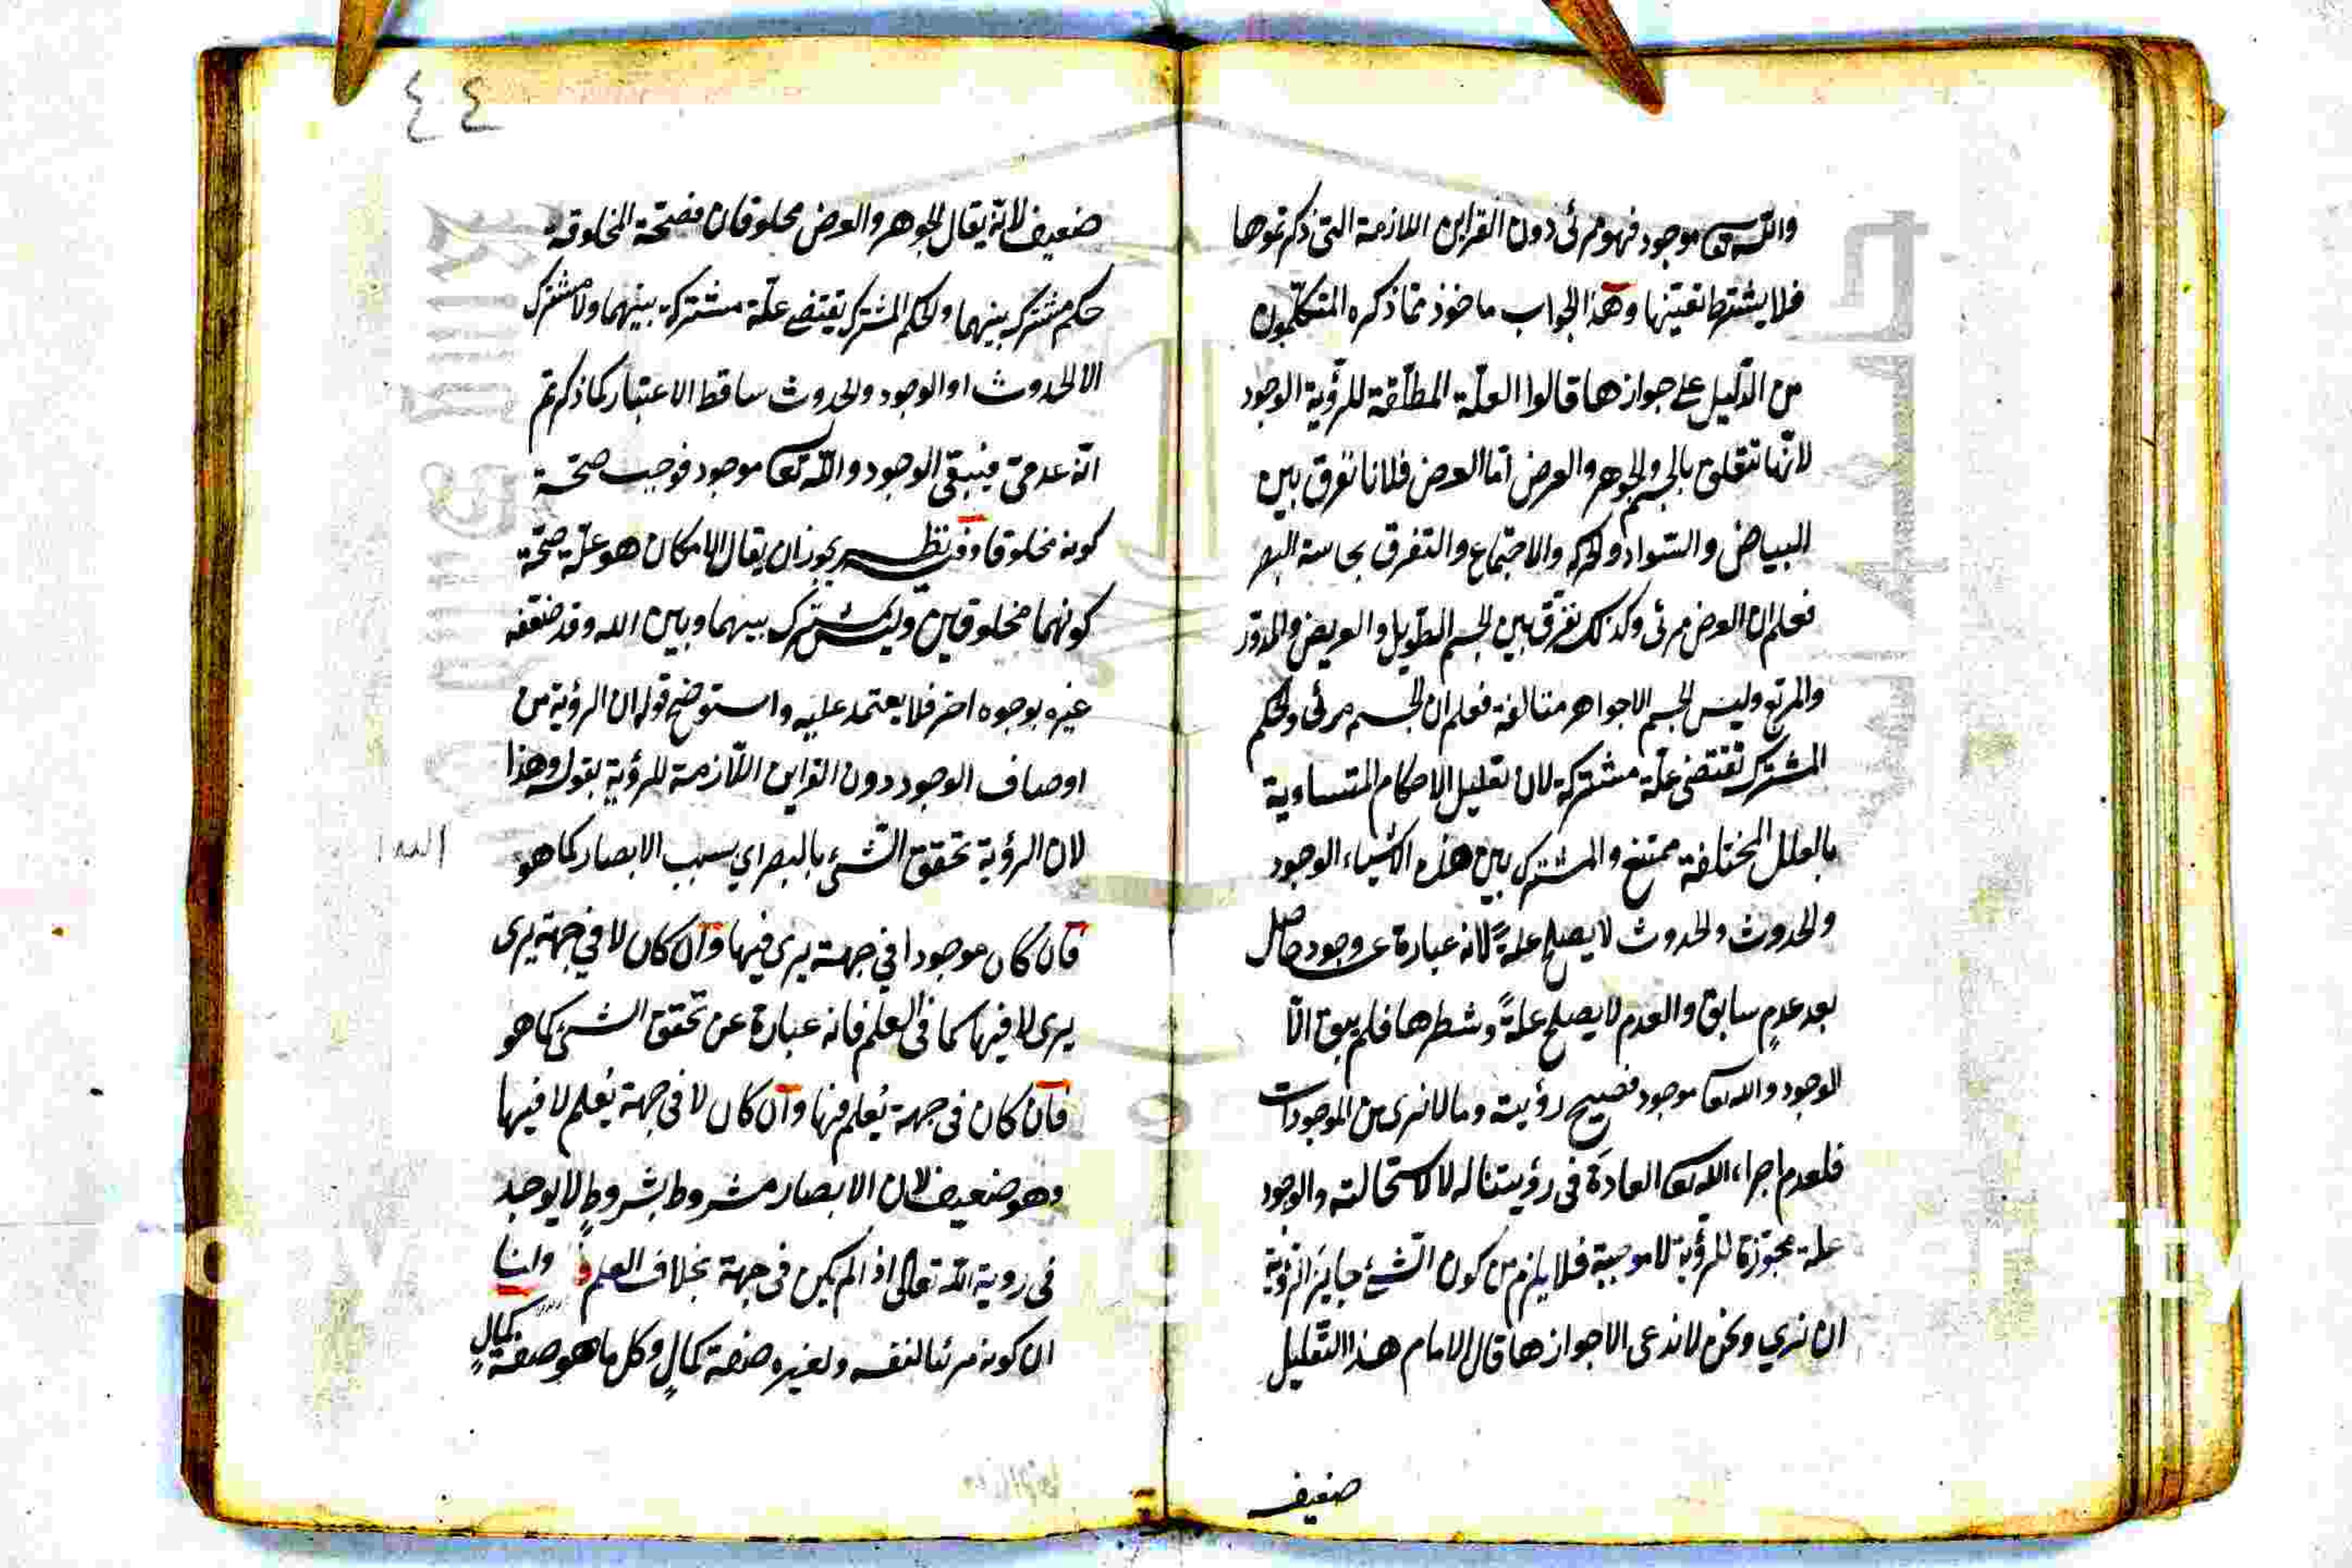 والله تعا موجود فهو مرئى دون القراين اللازمة التى ذكرتموها
فلا يشترط تعيّنها وهذا الجواب ماخوذ مما ذكره المتكلّمون
من الدّليل على جوازها قالوا العلّة المطلقة للرّؤية الوجود
لانّها تتعلق بالجسم والجوهر والعرض امّا العرض فلانا نفرق بين
البياض والسّواد والحركة والاجتماع والتفرق بحاسة البصر
فعلم ان العرض مرئى وكذلك نفرّق بين الجسم الطّويل والعريض والمدوّر
والمربّع وليس الجسم الا جواهر متالفة فعلم ان الجسم مرئى والحكم
المشترك تقتضى علّة مشتركة لان تعليل الاحكام المتساوية
بالعلل المختلفة ممتنع والمشترك بين هذه الاشياء الوجود
والحدوث والحدوث لا يصلح علةً لانه عبارة عن وجود حاصل
بعد عدمٍ سابق والعدم لا يصلح علةً وشطرها فلم يبق الّا
الوجود والله تعا موجود فصيح رؤيته وما لا نرى من الموجودات
فلعدم اجراء الله تعا العادَة فى رؤيتنا له لا لاستحالته والوجود
علة مجوّزة للرّؤية لا موجبة فلا يلزم من كون الشّئ جايز الرّؤية
ان نري ونحن لا ندعى الا جوازها قال الامام هذا التّعليل
ضعيف
٤٤
ضعيف لانّه يقال الجوهر والعرض مخلوقان فصحّة المخلوقية
حكم مشترك بينهما والحكم المشترك يقتضى علّة مشتركة بينهما ولا مشترك
الا الحدوث او الوجود والحدوث ساقط الاعتبار كما ذكرتم
انّه عدمىّ فيبقى الوجود والله تعا موجود فوجب صحّة
كونه مخلوقا وفيه نظر يجوز ان يقال الامكان هو علّة صحّة
كونهما مخلوقين وليس بمشترك بينهما وبين الله وقد ضعّفه
غيره بوجوه اخر فلا يعتمد عليه واستوضح قوله ان الرؤية من
اوصاف الوجود دون القراين اللّازمة للرؤية بقوله وهذا
لان الرؤية تحقق الشّئ بالبصر اي بسبب الابصار كما هو
فان كان موجودا في جهة يرى فيها وان كان لا في جهة يرى
يرى لا فيها كما فى العلم فانه عبارة عن تحقق الشئ كما هو
فان كان فى جهة يُعلم فيها وان كان لا فى جهة يُعلم لا فيها
وهو ضعيف لان الابصار مشروط بشروطٍ لا يوجد
فى روية الله تعالى اذا لم يكن فى جهة بخلاف العلم وانّا
ان كونه مرئيا لنفسه ولغيره صفة كمالٍ وكل ما هو صفة كمالٍ